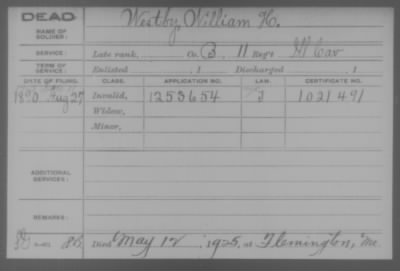 DEAD
NAME OF SOLDIER: Westby, William H.
SERVICE: Late rank, Co. B, 11 Reg't Ill Cav
TERM OF SERVICE: Enlisted , 1 Discharged , 1
DATE OF FILING. CLASS. APPLICATION NO. LAW. CERTIFICATE NO.
1890 Aug 27 Invalid, 1253654 J 1021491
Widow,
Minor,
ADDITIONAL SERVICES:
REMARKS:
Died May 12, 1925, at Flemington, Mo.